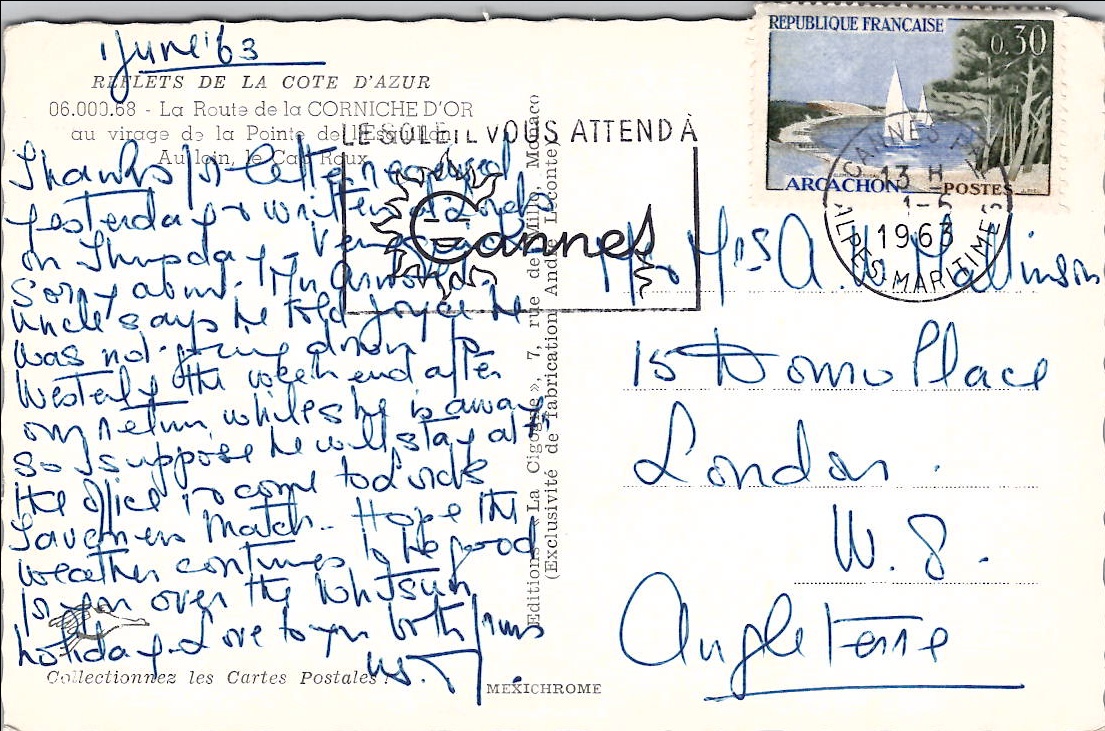 1 June '63
REFLETS DE LA COTE D'AZUR
06.000.68 - La Route de la CORNICHE D'OR
au virage de la Pointe de l'Esquillon
Au loin, le Cap Roux
Thanks for letter received
yesterday & written
on Thursday.
sorry about Mr Arnold.
Uncle says he told Joyce he
was not going down to
Westerly the weekend after
my return, while she is away
so I suppose he will stay at
the office & to come to Lords
Taverners Match. Hope the
weather continues to be good
for you over the Whitsun
holiday. Love to you both from
us.
Collectionnez les Cartes Postales !
Editions «La Cigogne», 7, rue de Millo, Monaco
(Exclusivité de fabrication André Leconte)
MEXICHROME
LE SOLEIL VOUS ATTEND À
Cannes
REPUBLIQUE FRANCAISE
0.30
ARCACHON
POSTES
CANNES
13 H
1-6
1963
ALPES MARITIMES
Mr & Mrs A. W. Mallinson
15 Place
London.
W. 8.
Angleterre